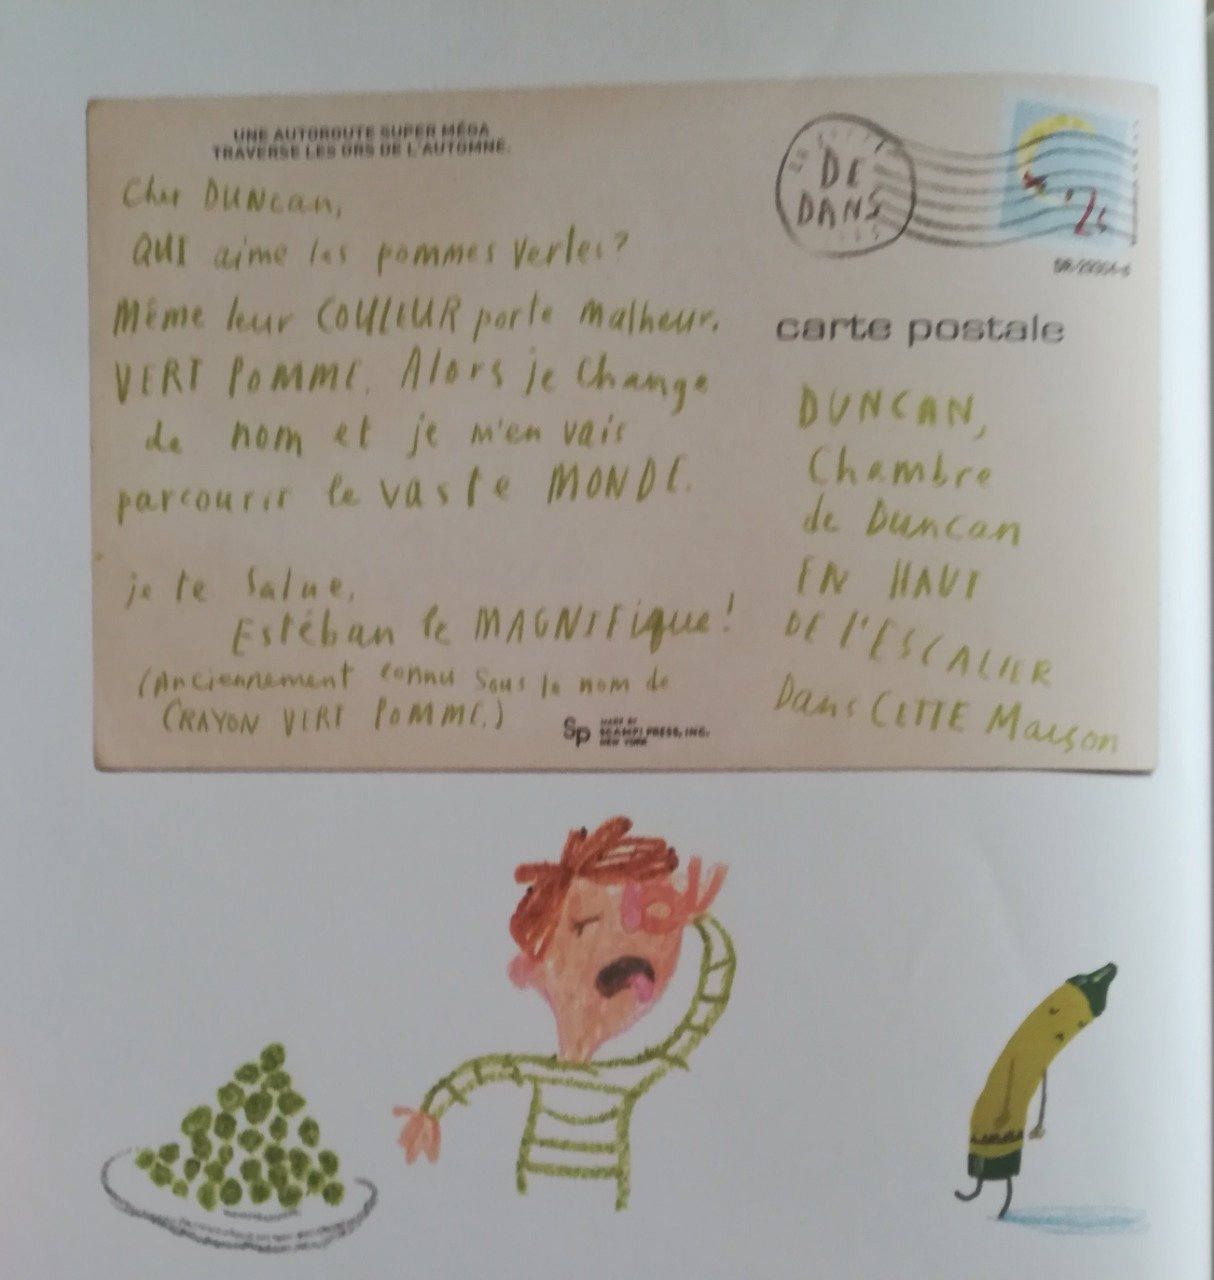 UNE AUTOROUTE SUPER MÉGA
TRAVERSE LES ORS DE L'AUTOMNE.
Cher DUNCAN,
QUI aime les pommes Vertes?
Même leur COULEUR porte malheur.
VERT POMME. Alors je change
de nom et je m'en vais
parcourir le vaste MONDE.
je te Salue,
Estéban le MAGNIFique!
(Anciennement connu Sous le nom de
CRAYON VERT POMME.)
Sp
MADE BY
SCAMPI PRESS, INC.
NEW YORK
DE
DANS
carte postale
DUNCAN,
Chambre
de Duncan
EN HAUT
DE l'ESCALIER
Dans CETTE Maison